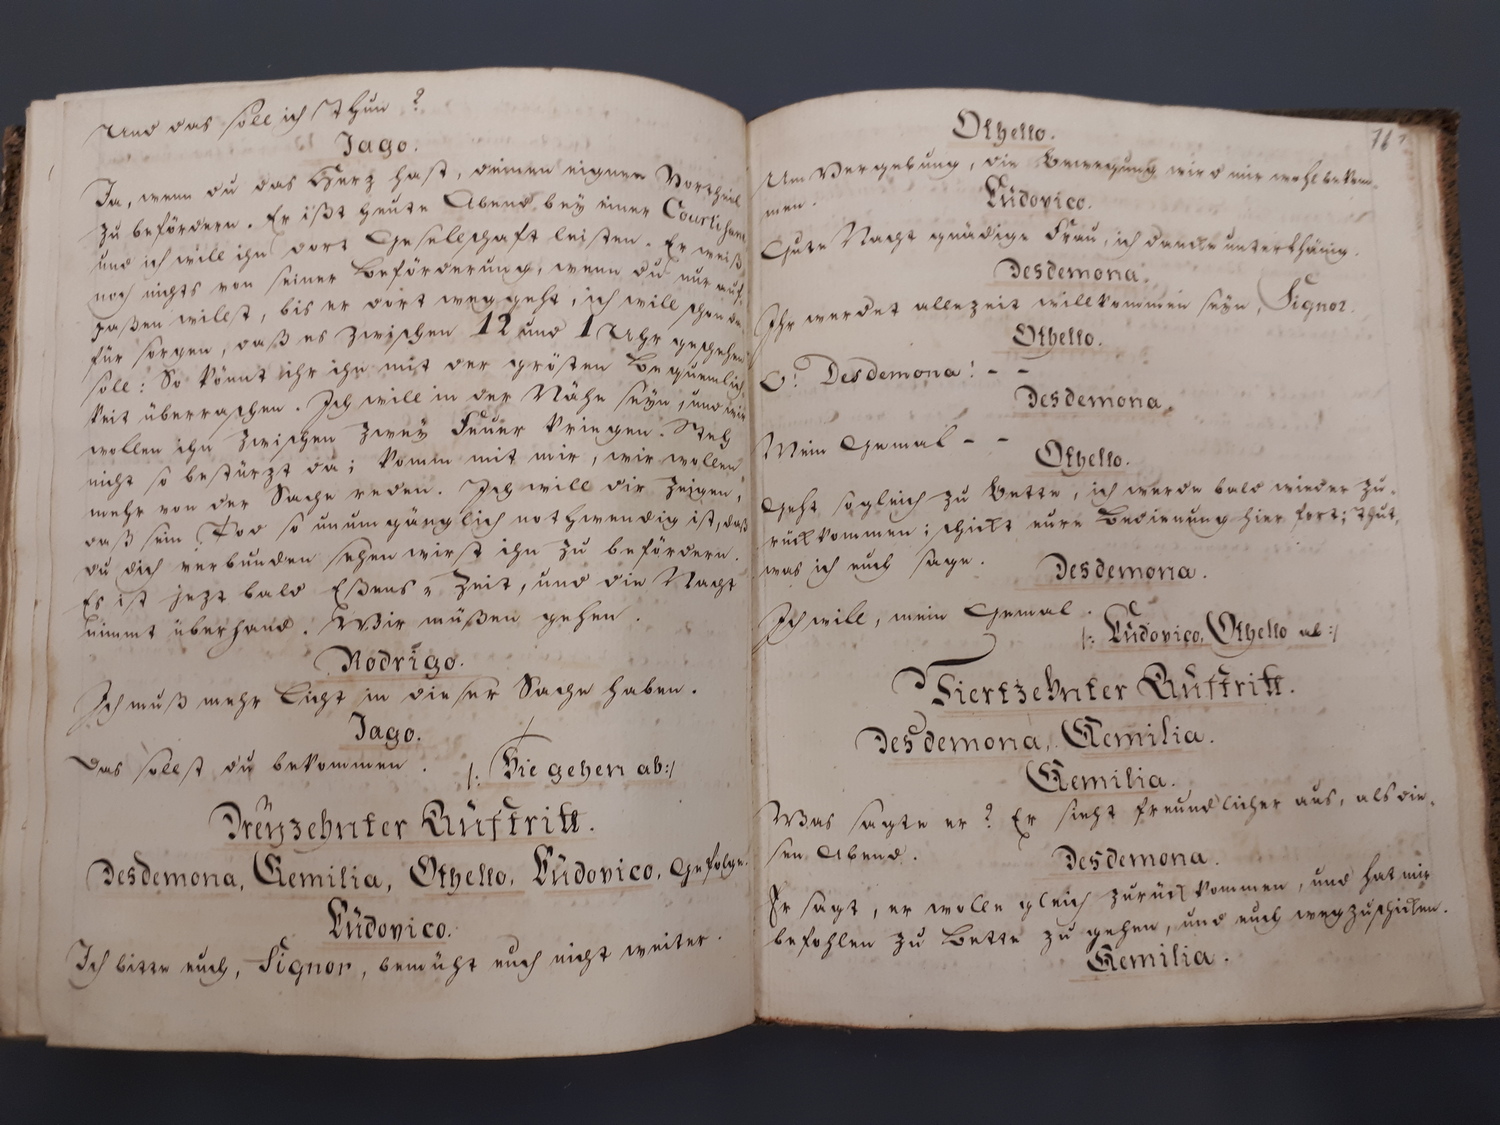 Und das soll ich thun?
Jago.
Ja, wenn du das Herz hast, deinen eignen Vortheil
zu befördern. Er ißt heute Abend bey einer Courtisane
und ich will ihn dort Gesellschaft leisten. Er weiß
noch nichts von seiner Beförderung, wenn du nur auf-
paßen willst, bis er dort weggeht, ich will schon da-
für sorgen, daß es zwischen 12 und 1 Uhr geschehen
soll: So könnt ihr ihn mit der grösten Bequemlich-
keit überraschen. Ich will in der Nähe seyn, und wir
wollen ihn zwischen zwey Feuer kriegen. Steh
nicht so bestürzt da; komm mit mir, wir wollen
mehr von der Sache reden. Ich will dir zeigen,
daß sein Tod so unumgänglich nothwendig ist, daß
du dich verbunden sehen wirst ihn zu befördern.
Es ist jezt bald Eßens-Zeit, und die Nacht
nimmt überhand. Wir müßen gehen.
Rodrigo.
Ich muß mehr Licht in dieser Sache haben.
Jago.
Das sollst du bekommen. /: Sie gehen ab :/
Dreyzehnter Auftritt.
Desdemona, Aemilia, Othello, Ludovico, Gefolge.
Ludovico.
Ich bitte euch, Signor, bemüht euch nicht weiter.
Othello.
Um Vergebung, die Bewegung wird mir wohl bekom-
men.
Ludovico.
Gute Nacht gnädige Frau, ich danke unterthänig.
Desdemona.
Ihr werdet allezeit willkommen seyn, Signor.
Othello.
O! Desdemona! - -
Desdemona.
Mein Gemal - -
Othello.
Geht sogleich zu Bette, ich werde bald wieder zu-
rückkommen; schickt eure Bedienung hier fort; thut,
was ich euch sage.
Desdemona.
Ich will, mein Gemal.
/: Ludovico, Othello ab :/
Vierzehnter Auftritt.
Desdemona, Aemilia.
Aemilia.
Was sagte er? Er sieht freundlicher aus, als die-
sen Abend.
Desdemona.
Er sagt, er wolle gleich zurückkommen, und hat mir
befohlen zu Bette zu gehen, und euch wegzuschicken.
Aemilia.